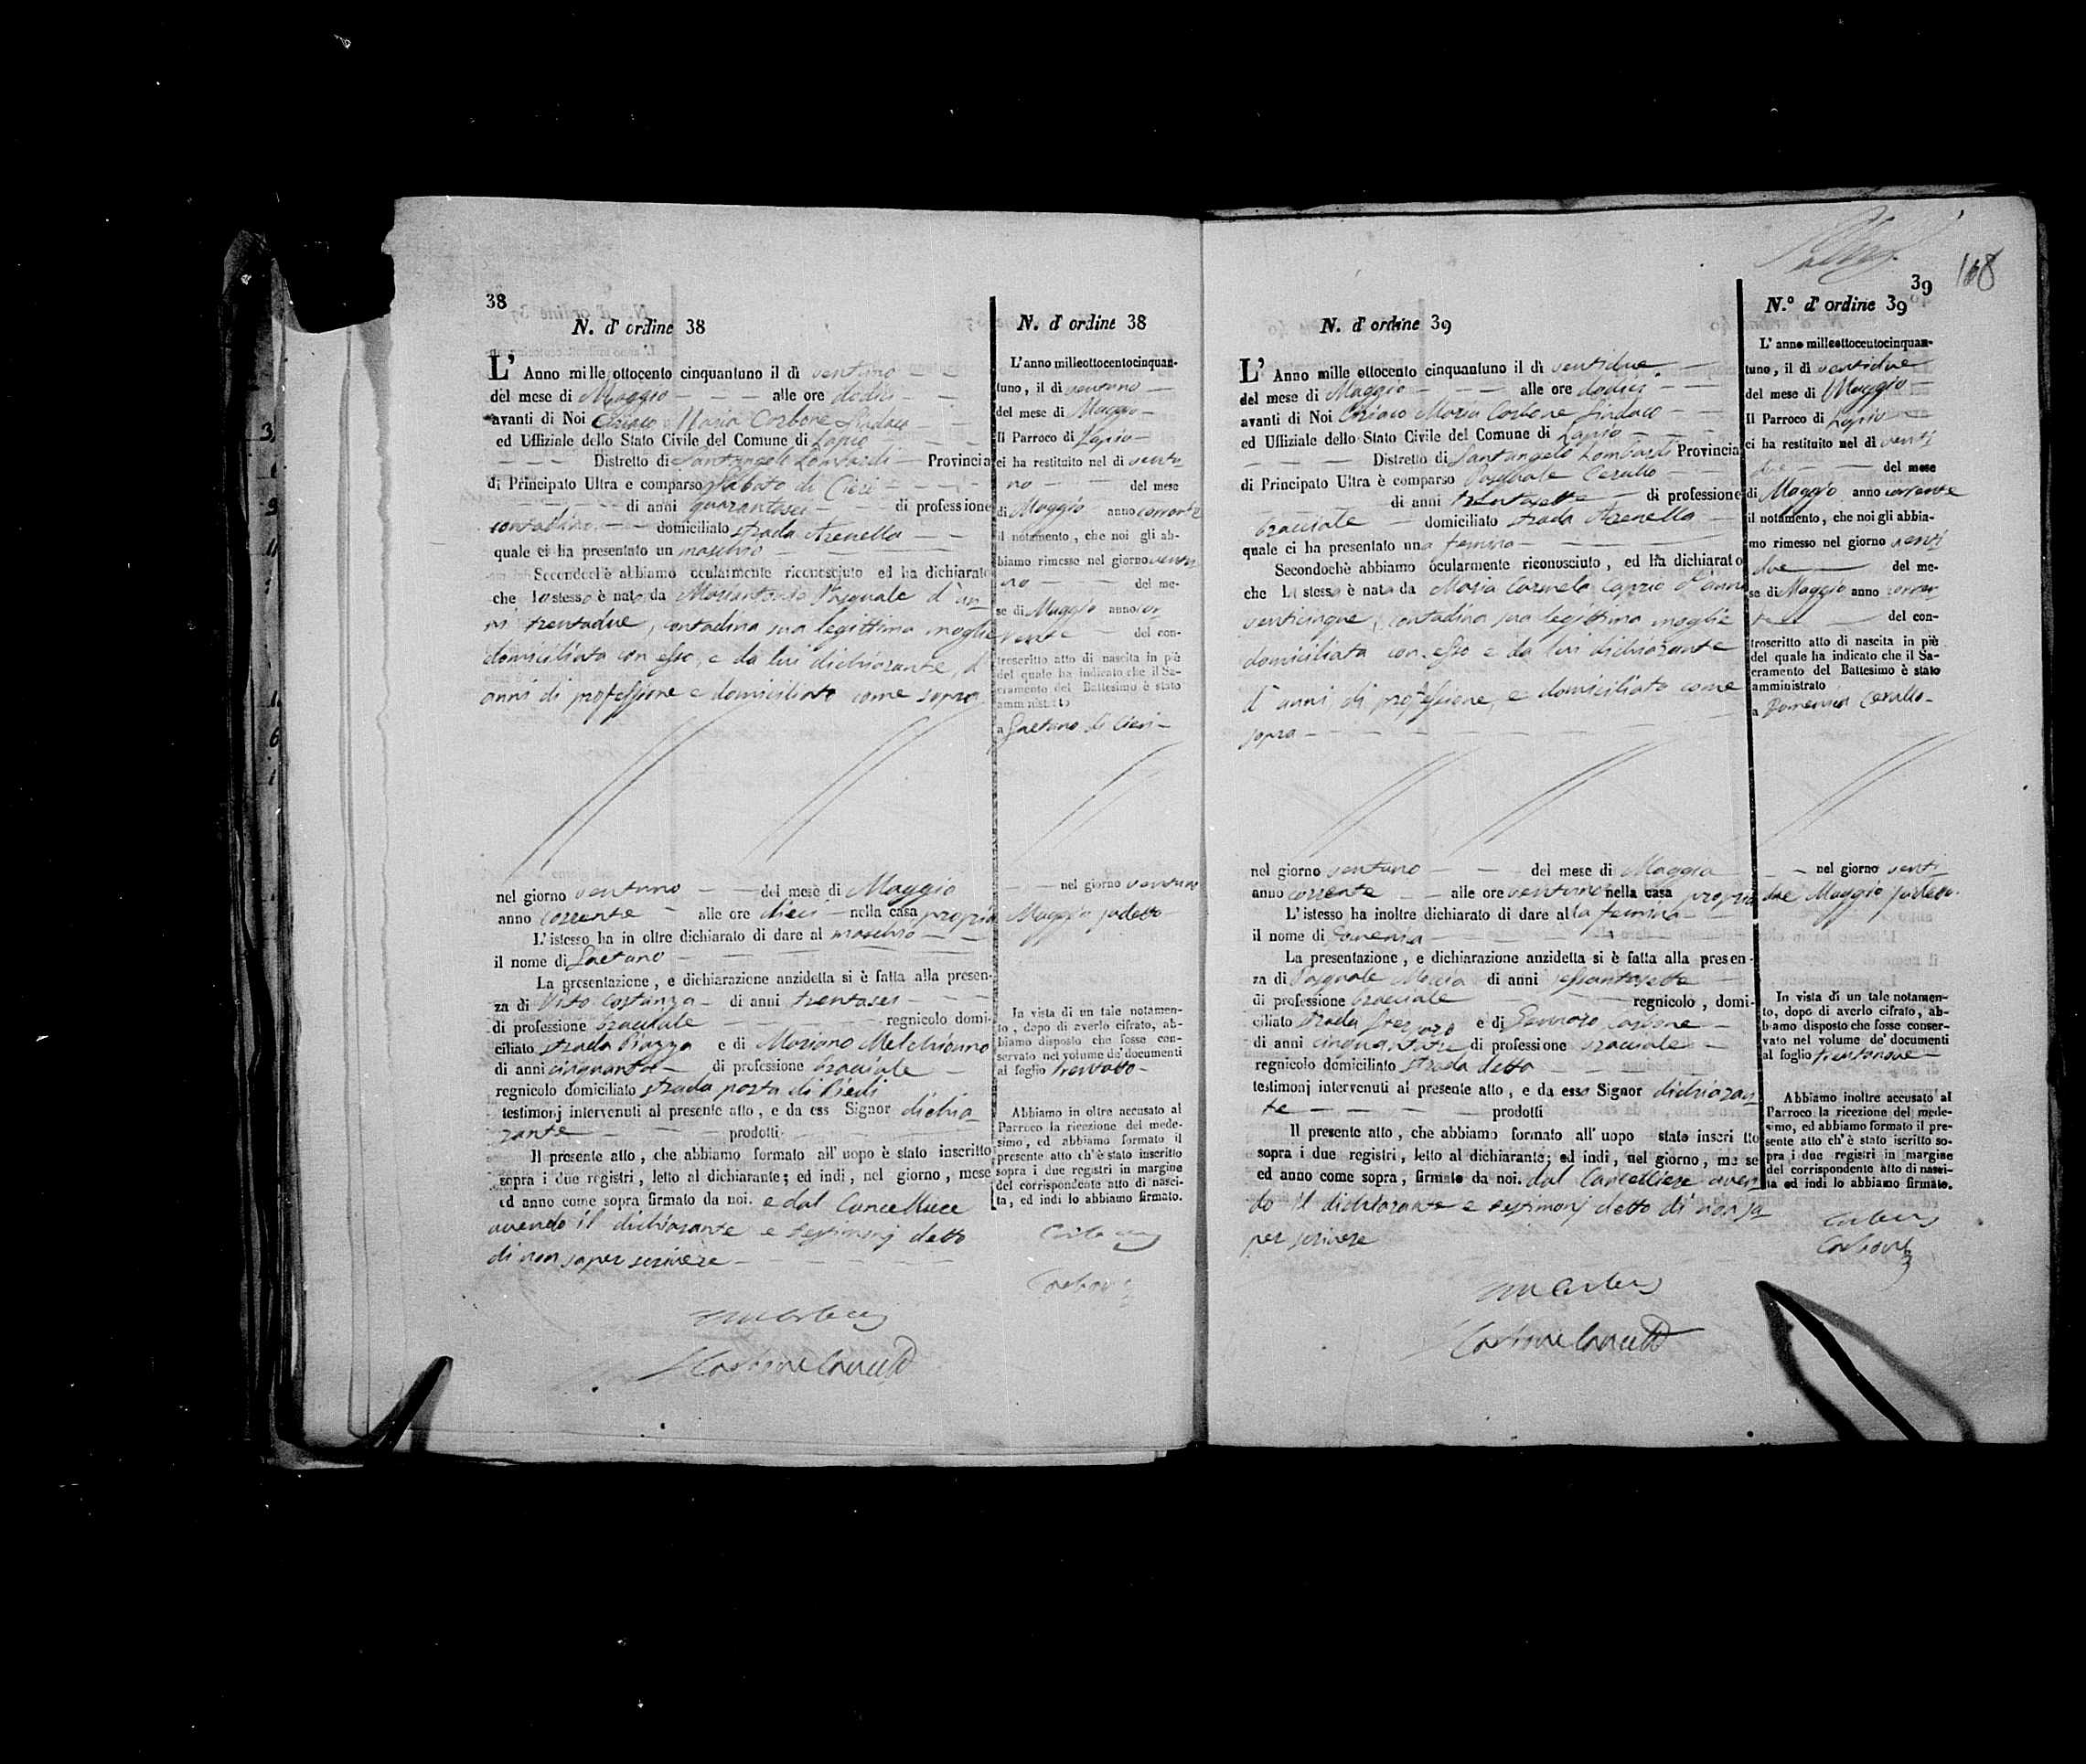 38
N. d' ordine 38
L' Anno mille ottocento cinquantuno il dì ventuno
del mese di Maggio alle ore dodici
avanti di Noi Ciriaco Maria Carbone Sindaco
ed Uffiziale dello Stato Civile del Comune di Lapio
Distretto di Santangelo Lombardi Provincia
di Principato Ultra e comparso Sabato di Cieri
di anni quarantasei di professione
contadino domiciliato strada Arenella
quale ci ha presentato un maschio
Secondochè abbiamo ocularmente riconosciuto ed ha dichiarato
che lo stesso è nato da Mariantonia Pasquale d'an
ni trentadue, contadina sua legittima moglie
domiciliata con esso, e da lui dichiarante, d'
anni di professione e domiciliato come sopra
nel giorno ventuno del mese di Maggio
anno corrente alle ore dieci nella casa propria
L' istesso ha in oltre dichiarato di dare al maschio
il nome di Gaetano
La presentazione, e dichiarazione anzidetta si è fatta alla presen-
za di Vito Costanza di anni trentasei
di professione bracciale regnicolo domi-
ciliato strada Piazza e di Mariano Melchionno
di anni cinquanta di professione bracciale
regnicolo domiciliato strada porta di Piedi
testimonj intervenuti al presente atto, e da ess Signor dichia
rante prodotti
Il presente atto, che abbiamo formato all' uopo è stato inscritto
sopra i due registri, letto al dichiarante; ed indi, nel giorno, mese
ed anno come sopra firmato da noi. e dal Cancelliere
avendo il dichiarante e testimonj detto
di non saper scrivere
Carbone Cancell
N. d' ordine 38
L' anno milleottocentocinquan-
tuno, il di ventuno
del mese di Maggio
Il Parroco di Lapio
ci ha restituito nel di ventu
no del mese
di Maggio anno corrente
il notamento, che noi gli ab-
biamo rimesso nel giorno ventu
no del me-
se di Maggio anno cor
rente del con-
troscritto atto di nascita in piè
del quale ha indicato che il Sa-
cramento del Battesimo è stato
amministrato
a Gaetano di Cieri
nel giorno ventuno
Maggio sudetto
In vista di un tale notamen-
to, dopo di averlo cifrato, ab-
biamo disposto che fosse con-
servato nel volume de' documenti
al foglio trentotto
Abbiamo in oltre accusato al
Parroco la ricezione del mede-
simo, ed abbiamo formato il
presente atto ch'è stato inscritto
sopra i due registri in margine
del corrispondente atto di nasci-
ta, ed indi lo abbiamo firmato.
Carbone
168
39
N. d' ordine 39
L' Anno mille ottocento cinquantuno il dì ventidue
del mese di Maggio alle ore dodici
avanti di Noi Ciriaco Maria Carbone Sindaco
ed Uffiziale dello Stato Civile del Comune di Lapio
Distretto di Santangelo Lombardi Provincia
di Principato Ultra è comparso Pasquale Cerullo
di anni trentasette di professione
bracciale domiciliato strada Arenella
quale ci ha presentato una femina
Secondochè abbiamo ocularmente riconosciuto, ed ha dichiarato
che la stessa è nata da Maria Carmela Caprio d'anni
venticinque, contadina sua legittima moglie
domiciliata con esso e da lui dichiarante
d' anni di professione, e domiciliato come
sopra
nel giorno ventuno del mese di Maggio
anno corrente alle ore ventuno nella casa propria
L' istesso ha inoltre dichiarato di dare alla femina
il nome di
La presentazione, e dichiarazione anzidetta si è fatta alla presen-
za di Pasquale di anni sessantasette
di professione bracciale regnicolo, domi-
ciliato strada e di Gennaro Carbone
di anni cinquantatre di professione bracciale
regnicolo domiciliato strada detta
testimonj intervenuti al presente atto, e da esso Signor dichiaran
te prodotti
Il presente atto, che abbiamo formato all' uopo stato inscritto
sopra i due registri, letto al dichiarante; ed indi, nel giorno, mese
ed anno come sopra, firmato da noi. dal Cancelliere aven
do il dichiarante e testimonj detto di non sa
per scrivere
Carbone Cancell
N.° d' ordine 39
L' anno milleottocentocinquan-
tuno, il di ventidue
del mese di Maggio
Il Parroco di Lapio
ci ha restituito nel dì venti
due del mese
di Maggio anno corrente
il notamento, che noi gli abbia-
mo rimesso nel giorno venti
due del me-
se di Maggio anno corren
te del con-
troscritto atto di nascita in piè
del quale ha indicato che il Sa-
cramento del Battesimo è stato
amministrato
a Domenica Cerullo
nel giorno venti
due Maggio sudetto
In vista di un tale notamen-
to, dopo di averlo cifrato, ab-
biamo disposto che fosse conser-
vato nel volume de' documenti
al foglio trentanove
Abbiamo inoltre accusato al
Parroco la ricezione del mede-
simo, ed abbiamo formato il pre-
sente atto ch' è stato iscritto so-
pra i due registri in margine
del corrispondente atto di nasci-
ta ed indi lo abbiamo firmato.
Carbone